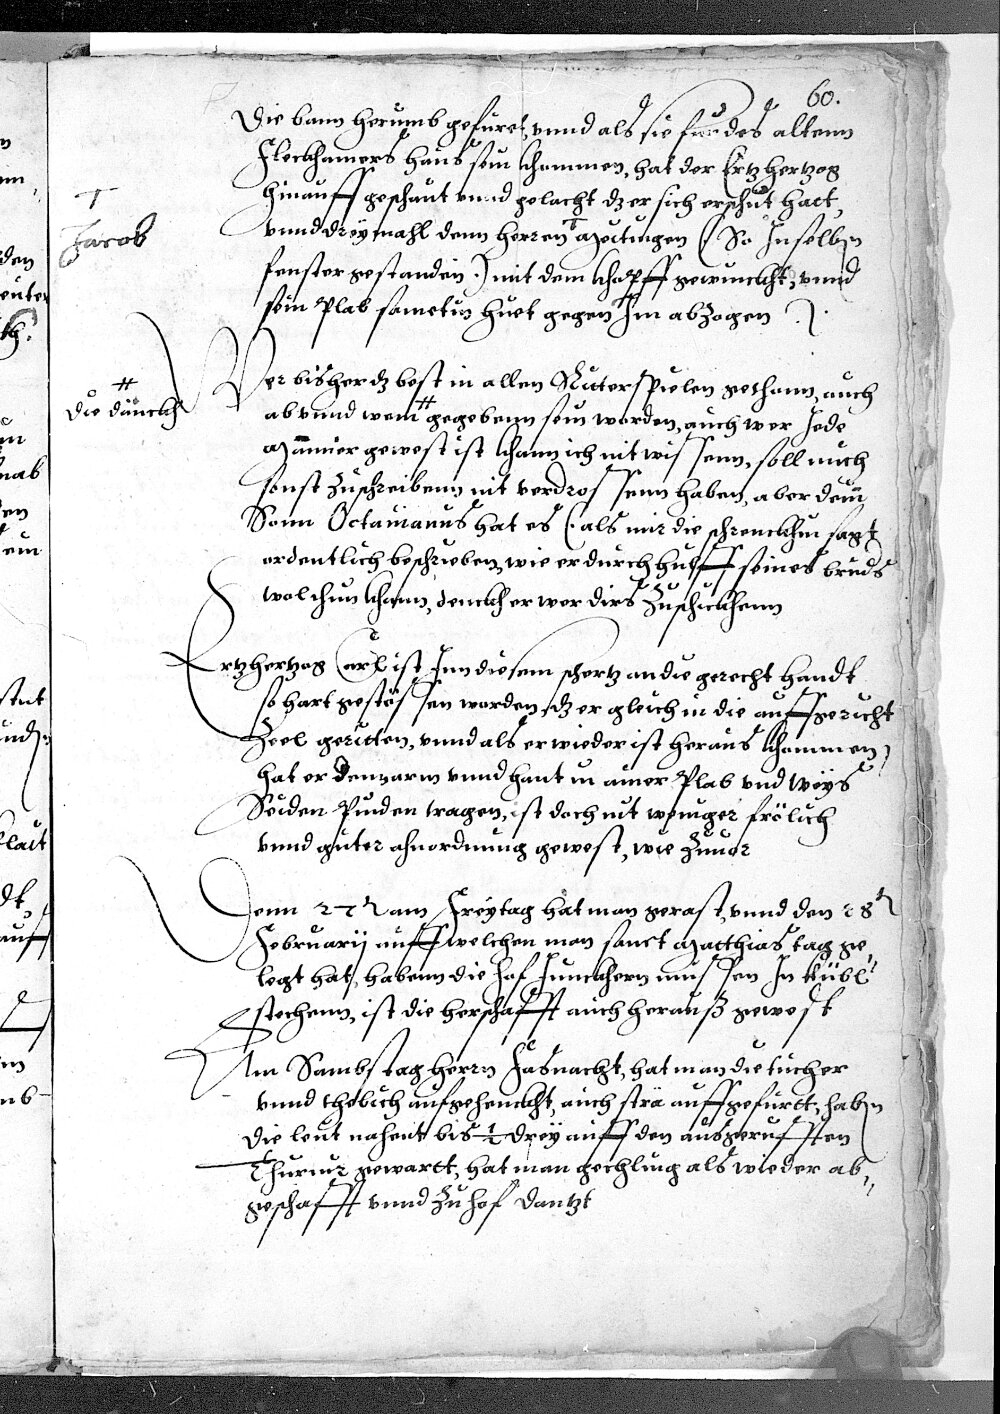 60.
Die bann herumb gefürt, vnnd als sie für des altenn
Fleckhamers haus sein khommen, hat der Ertzhertzog
hinauff geschaut vnnd gelacht dz er sich erschut hatt,
T
Jacob
vnnd dreymahl dem herren T (So Inselbn
fenster gestanden.) mit dem khopff gewunckht, vnnd
sein Plab sametin huet gegen Im abzogen
Wer bisher dz best in allen Ritterspielen gethann, auch
#
die dänckh
ab vnnd wem # gegebenn sein worden, auch wer Jede
Mannier gewest ist khann ich nit wissenn, soll mich
sonst zuschreibenn nit verdrossenn haben, aber dein
Sonn Octauianus hat es (als mir die schrenckhin sagt
ordentlich beschrieben, wie er durch hülff seines bruds
wol thun khann, denckh er wer dirs zuschickhenn
Ertzhertzog Carl ist Inn diesem schertz an die gerecht handt
so hart gestossen worden, dz er gleich in die auffgericht
Zeel geritten, vnnd als er wieder ist heraus khommen,
hat er denn arm vnnd hant in ainer Plab vnd weys
Seiden Pinden tragen, ist doch nit weniger frölich
vnnd guter ahnordnung gewest, wie zuuor
Denn 27 am Freytag hat man gerast, vnnd den 28
Februarij auff welchen man sanct Matthias tag ge,
legt hat, habenn die hof Junckhern müssen In kübl
stechenn, ist die herschafft auch herauß gewest
Am Sambstag herrn Fasnacht, hat man die tücher
vnnd thebich aufgehenckht, auch strä auffgefürtt, habn
die leut nahent bis 1/2 drey auff den ausgerufften
Thurnir gewartt, hat man gechling als wieder ab,,
geschafft vnnd zu hof dantzt